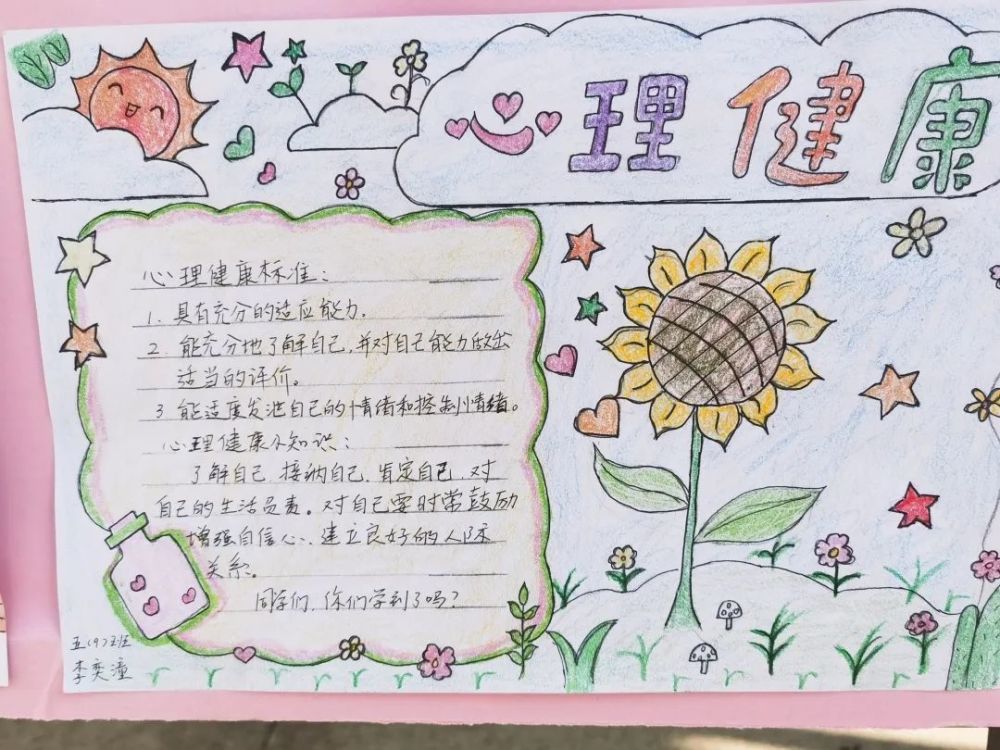 心理健康
心理健康标准：
1. 具有充分的适应能力。
2. 能充分地了解自己，并对自己能力做出
适当的评价。
3 能适度发泄自己的情绪和控制情绪。
心理健康小知识：
了解自己，接纳自己，肯定自己，对
自己的生活负责。对自己要时常鼓励
增强自信心、建立良好的人际
关系。
同学们，你们学到了吗？
五(9)班
李奕潼